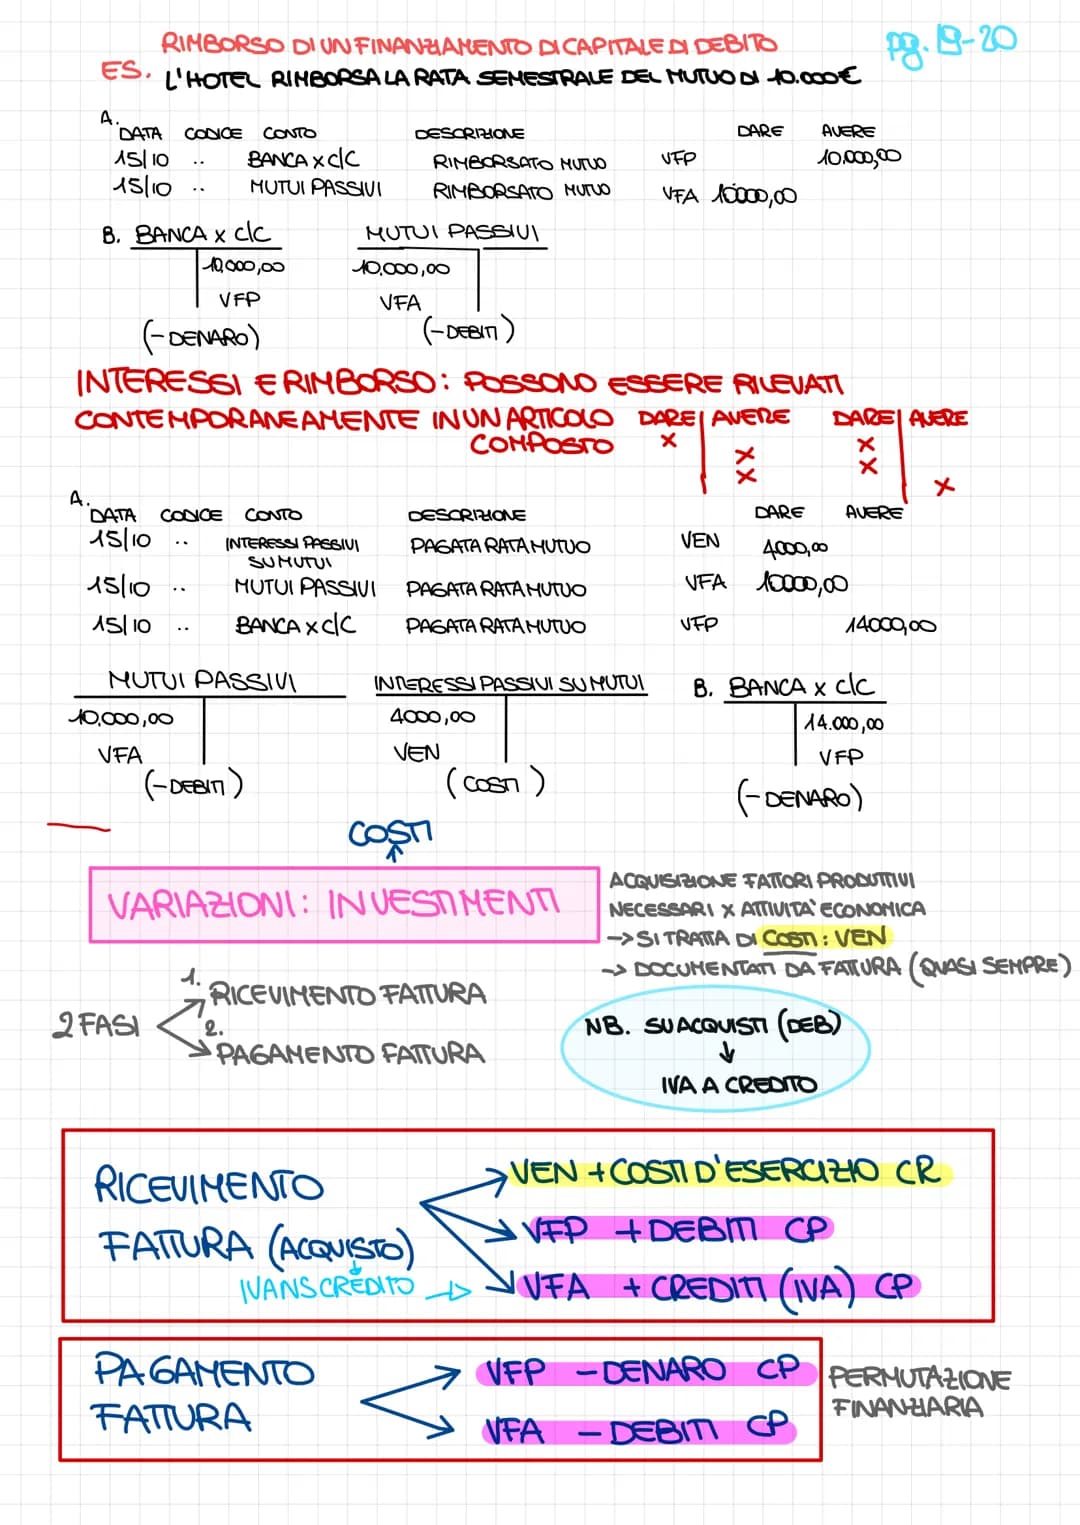 RIMBORSO DI UN FINANZIAMENTO DI CAPITALE DI DEBITO
pg. 19-20
ES. L'HOTEL RIMBORSA LA RATA SEMESTRALE DEL MUTUO DI 10.000€
A.
DATA CODICE CONTO DESCRIZIONE DARE AVERE
15/10 .. BANCA x c/c RIMBORSATO MUTUO VFP 10.000,00
15/10 .. MUTUI PASSIVI RIMBORSATO MUTUO VFA 10000,00
B. BANCA x c/c MUTUI PASSIVI
10.000,00 10.000,00
VFP VFA
(- DENARO) (- DEBITI)
INTERESSI E RIMBORSO: POSSONO ESSERE RILEVATI
CONTEMPORANEAMENTE IN UN ARTICOLO DARE | AVERE DARE | AVERE
COMPOSTO x x
x x
x x
A.
DATA CODICE CONTO DESCRIZIONE DARE AVERE
15/10 .. INTERESSI PASSIVI PAGATA RATA MUTUO VEN 4000,00
SU MUTUI
15/10 .. MUTUI PASSIVI PAGATA RATA MUTUO VFA 10000,00
15/10 .. BANCA x c/c PAGATA RATA MUTUO VFP 14000,00
MUTUI PASSIVI INTERESSI PASSIVI SU MUTUI B. BANCA x c/c
10.000,00 4000,00 14.000,00
VFA VEN VFP
(- DEBITI) (COSTI) (- DENARO)
COSTI
VARIAZIONI: INVESTIMENTI
ACQUISIZIONE FATTORI PRODUTTIVI
NECESSARI X ATTIVITA' ECONOMICA
-> SI TRATTA DI COSTI: VEN
-> DOCUMENTATI DA FATTURA (QUASI SEMPRE)
2 FASI
1. RICEVIMENTO FATTURA
2. PAGAMENTO FATTURA
NB. SU ACQUISTI (DEB)
↓
IVA A CREDITO
RICEVIMENTO
FATTURA (ACQUISTO)
IVA NS CREDITO
VEN + COSTI D'ESERCIZIO CR
VFP + DEBITI CP
VFA + CREDITI (IVA) CP
PAGAMENTO
FATTURA
VFP - DENARO CP
VFA - DEBITI CP
PERMUTAZIONE
FINANZIARIA